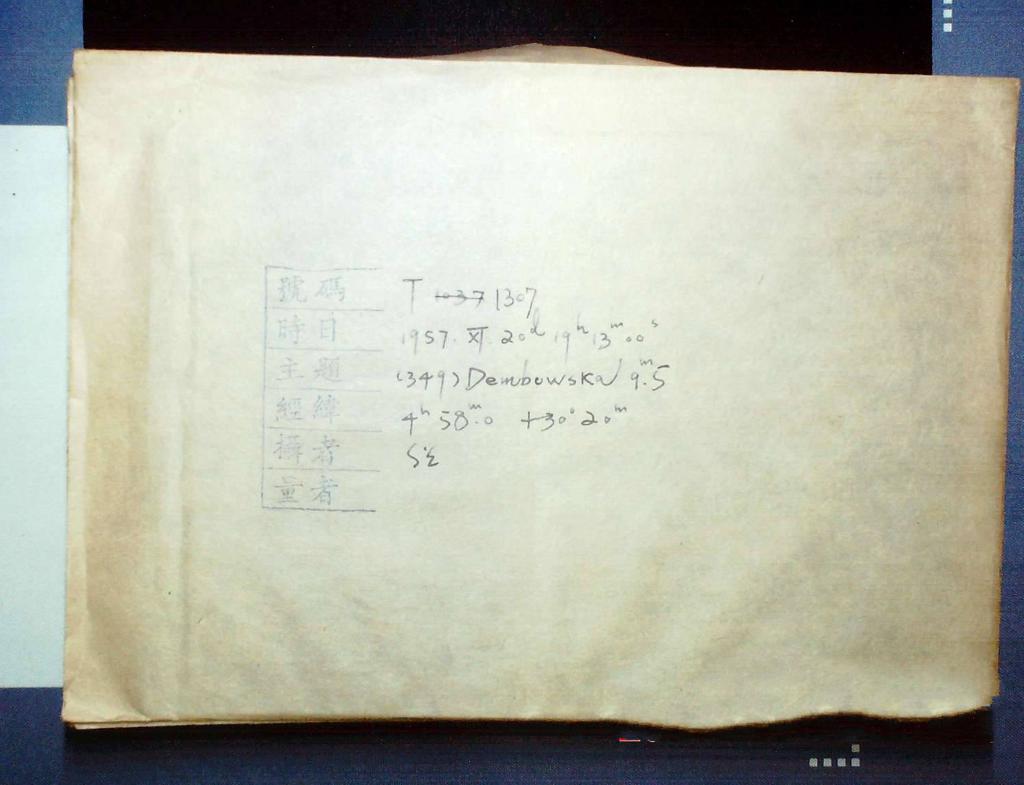 號碼 T 1037 1307
時日 1957. XI. 20ᵈ 19ʰ 13ᵐ 00ˢ
主題 (349) Dembowska 9ᵐ.5
經緯 4ʰ 58ᵐ.0 +30° 20ᵐ
攝者
量者